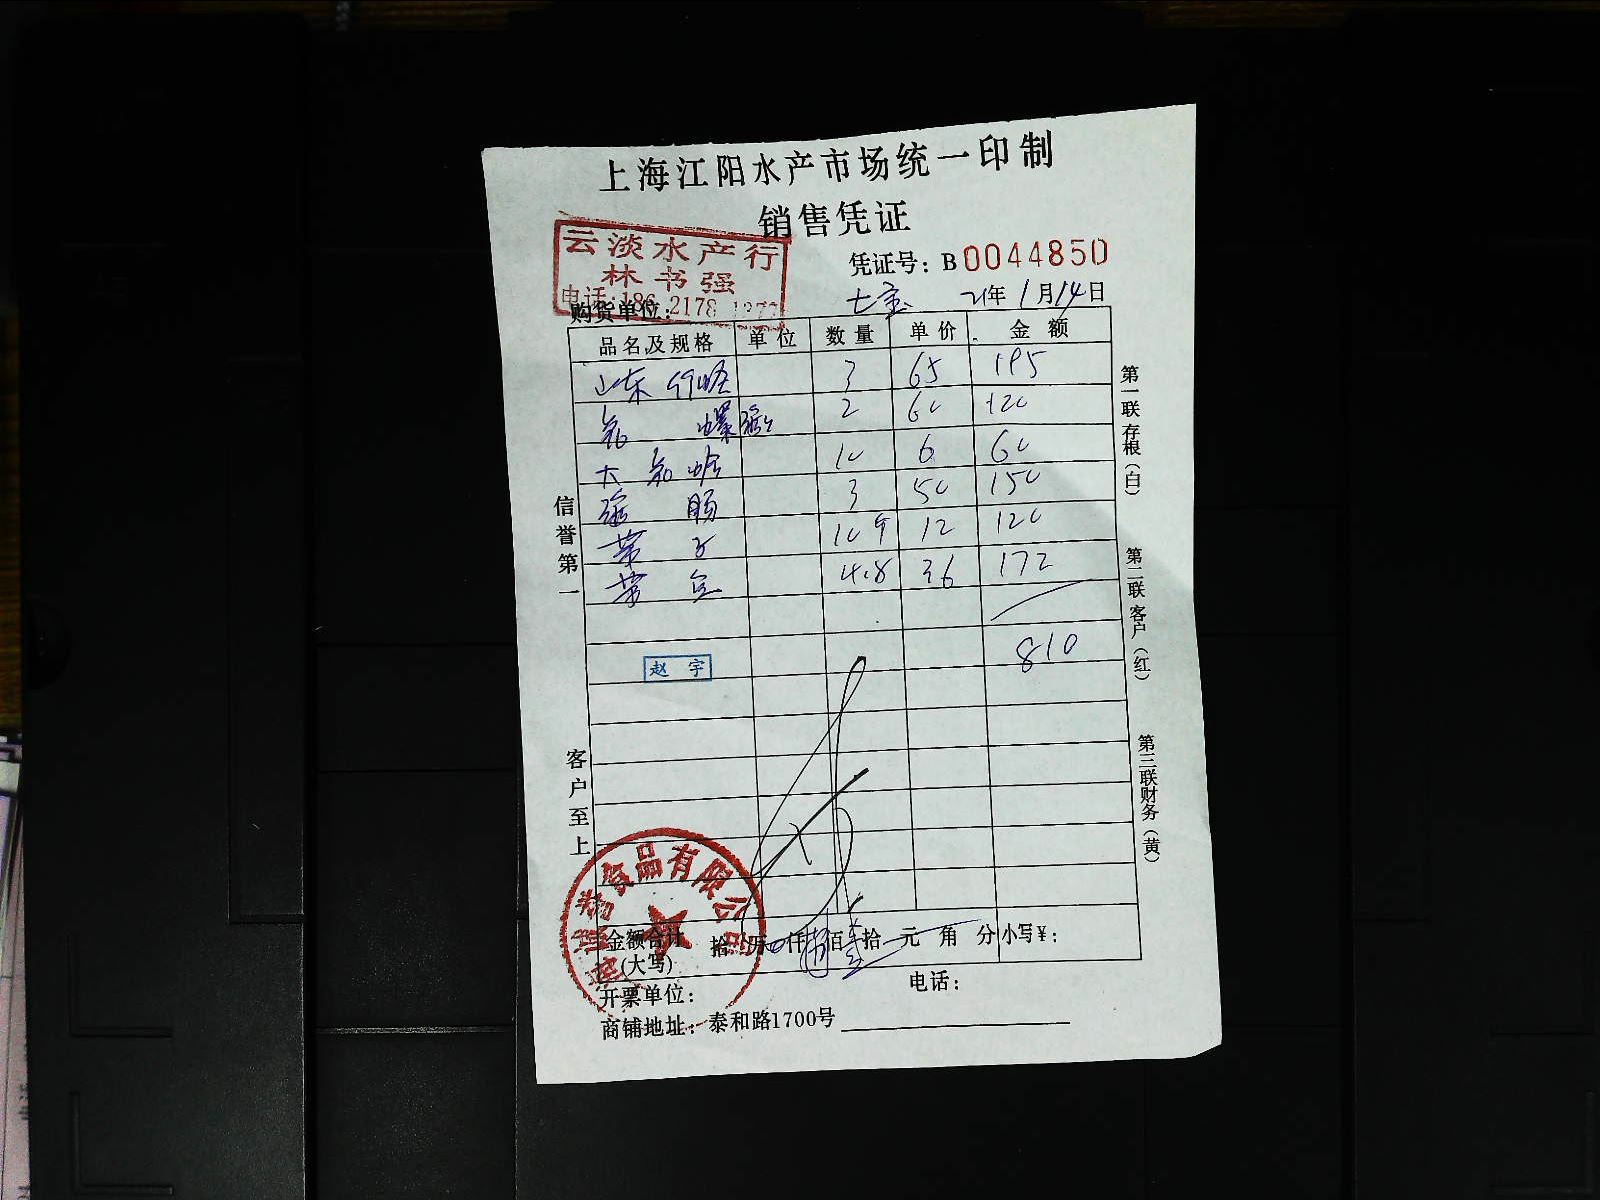 上海江阳水产市场统一印制
销售凭证
云淡水产行
林书强
电话:186 2178
凭证号：B 0044850
购货单位：
七宝 21年 1月 14日
品名及规格 单位 数量 单价 金额
山东 3 65 195
螺 2 60 120
大 蛤 10 6 60
肠 3 50 150
10 12 120
4.8 36 172
810
赵 宇
信誉第一
客户至上
第一联存根（白）
第二联客户（红）
第三联财务（黄）
食品有限公司
金额合计
(大写) 拾 万 仟 捌 佰 壹 拾 元 角 分 小写¥：
开票单位： 电话：
商铺地址：泰和路1700号